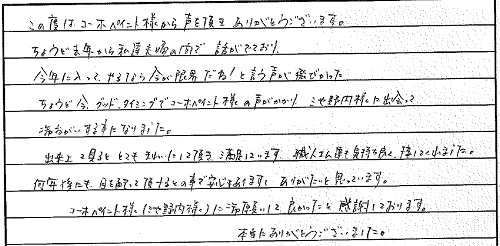 この度は、コーホペイント様から声を頂き ありがとうございます。
ちょうど去年から私達夫婦の間で 話がでており、
今年に入って、やるなら今が限界だね!と言う声が
ちょうど今、グッドタイミングでコーホペイント様の声がかかり 野内様に出会って
する事になりました。
出来上て見ると とてもきれいにして頂き 満足しています。職人さん達も気持ち良く して くれました。
何年後にも、目を配って頂けるとの事で安心もあります。ありがたいと思っています。
コーホペイント様 野内様 にお願いして 良かったと 感謝しております。
本当にありがとうございました。